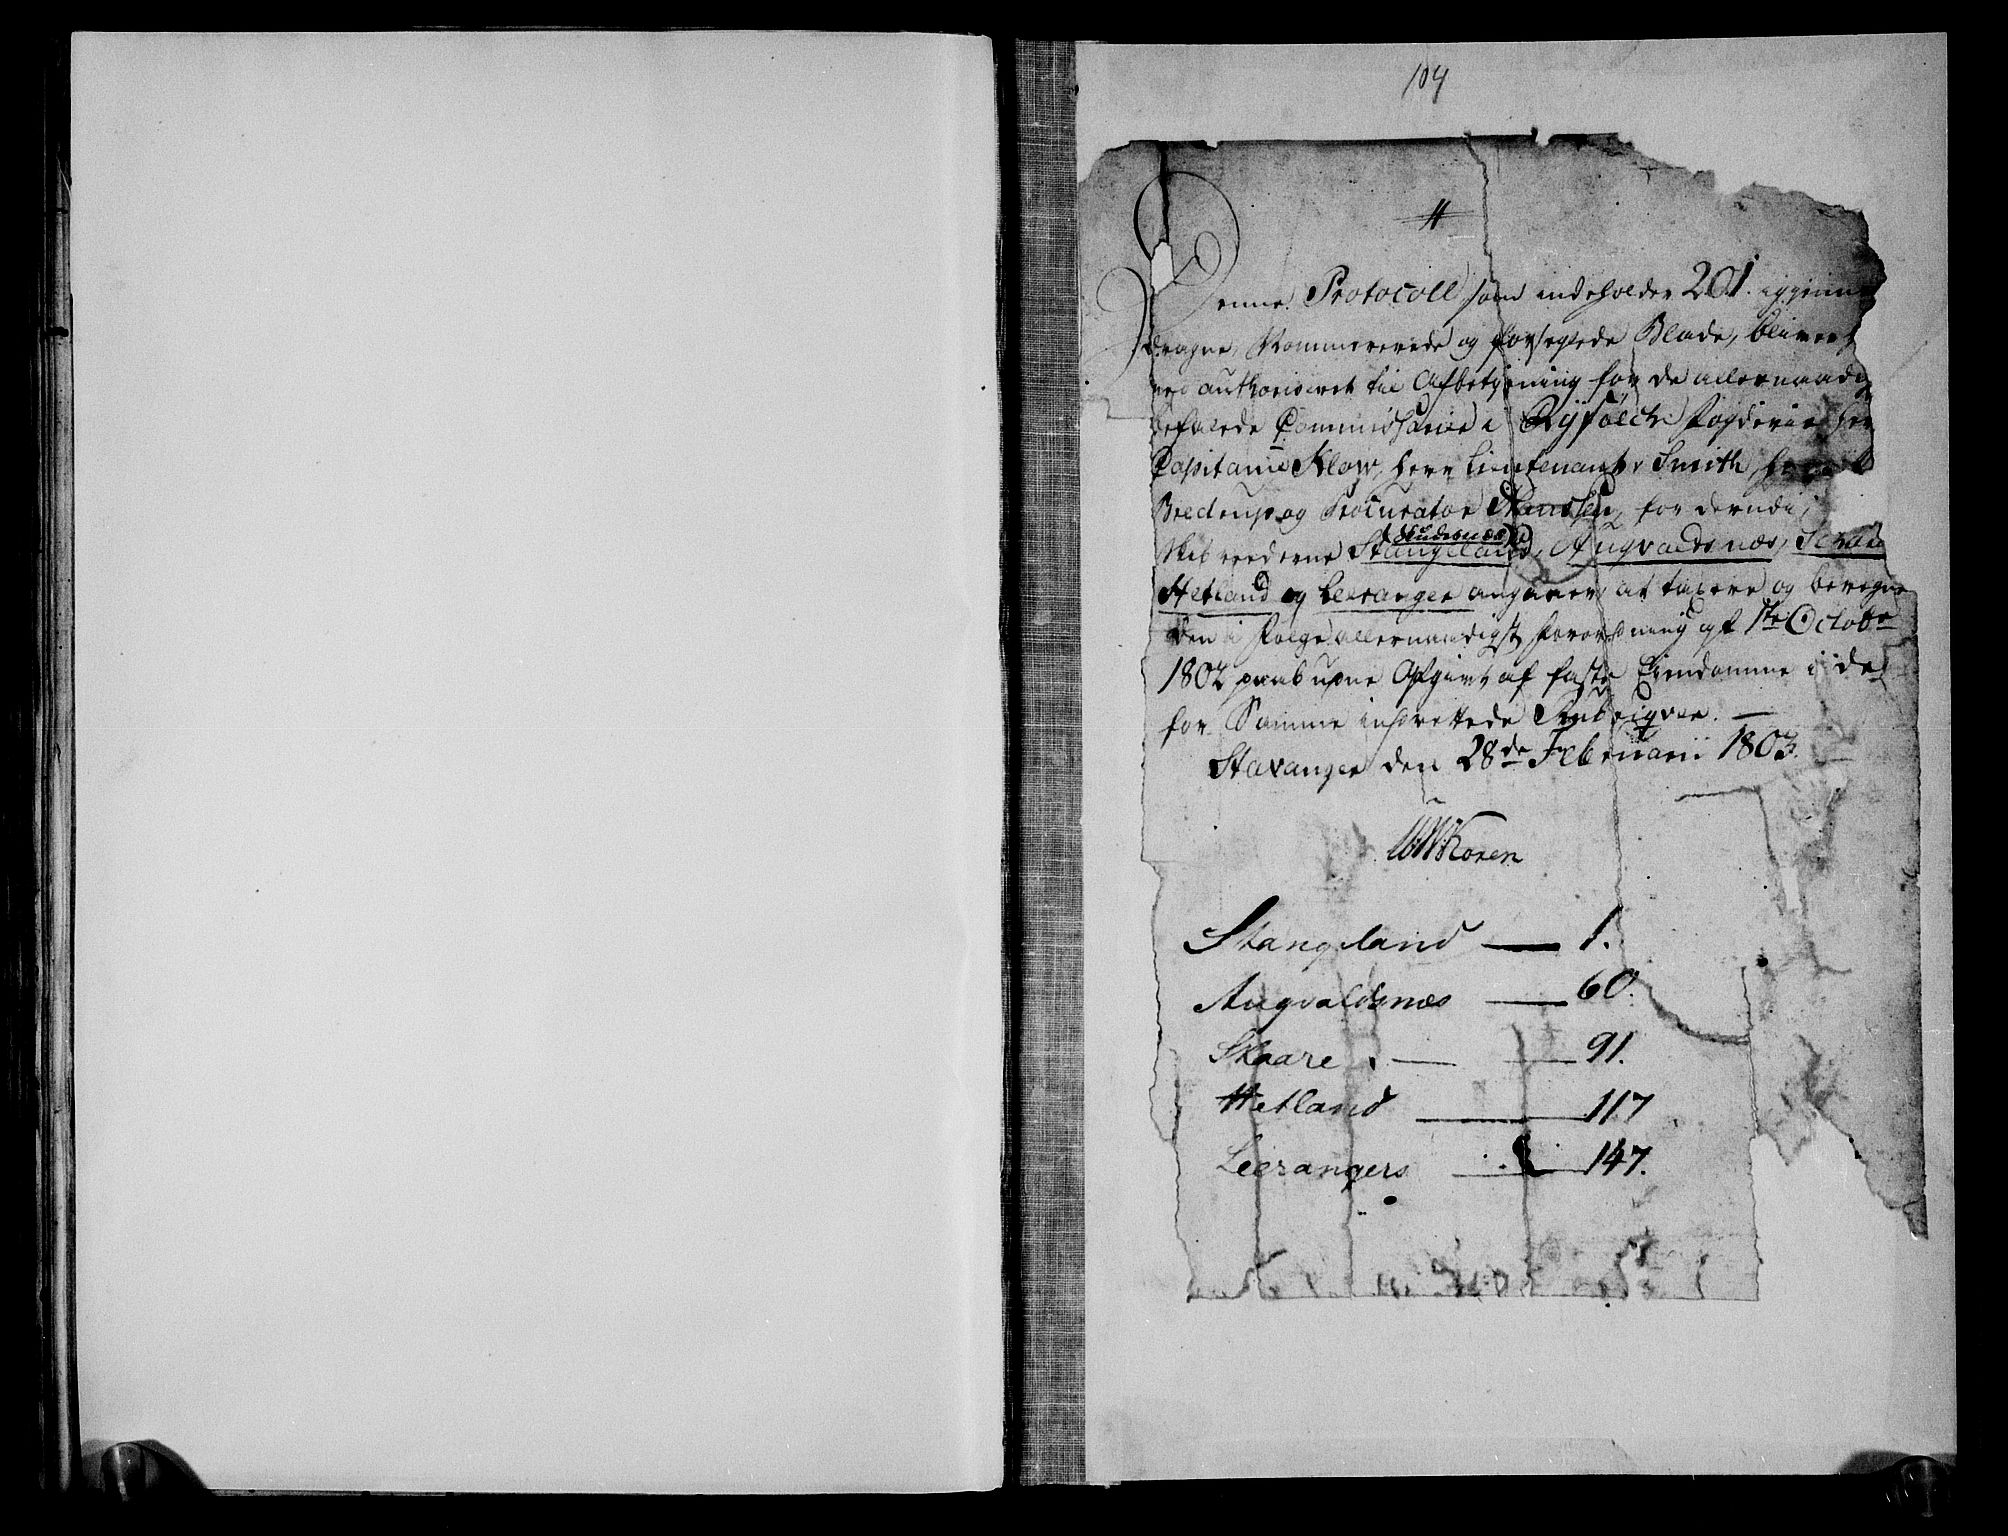 104
Denne Protocoll som indeholder 201 igjennem
dragne, Nommererede og forseglede Blade, bliver
authoriseret til Afbetjening for de allernaadigst
befalede Commissarier i Ryfölck Fogderie Herr
Capitaine Klow, Herr Lieutenant Smith,
Bredrup og Procurator Hanssen, for
Skibrederne Stangeland (Skudesnæs), Augvaldsnæs, Schaare
Hetland og Leeranger angaaer, at taxere og beregne
den i Følge allernaadigst Forordning af 1te October
1802 paabudne Afgivt af faste Eiendomme i de
for Samme indrettede Rubriqver. —
Stavanger den 28de Februarii 1803.
Koren
Stangeland — 1.
Augvaldsnæs — 60.
Skaare — 91.
Hetland — 117
Leerangers — 147.